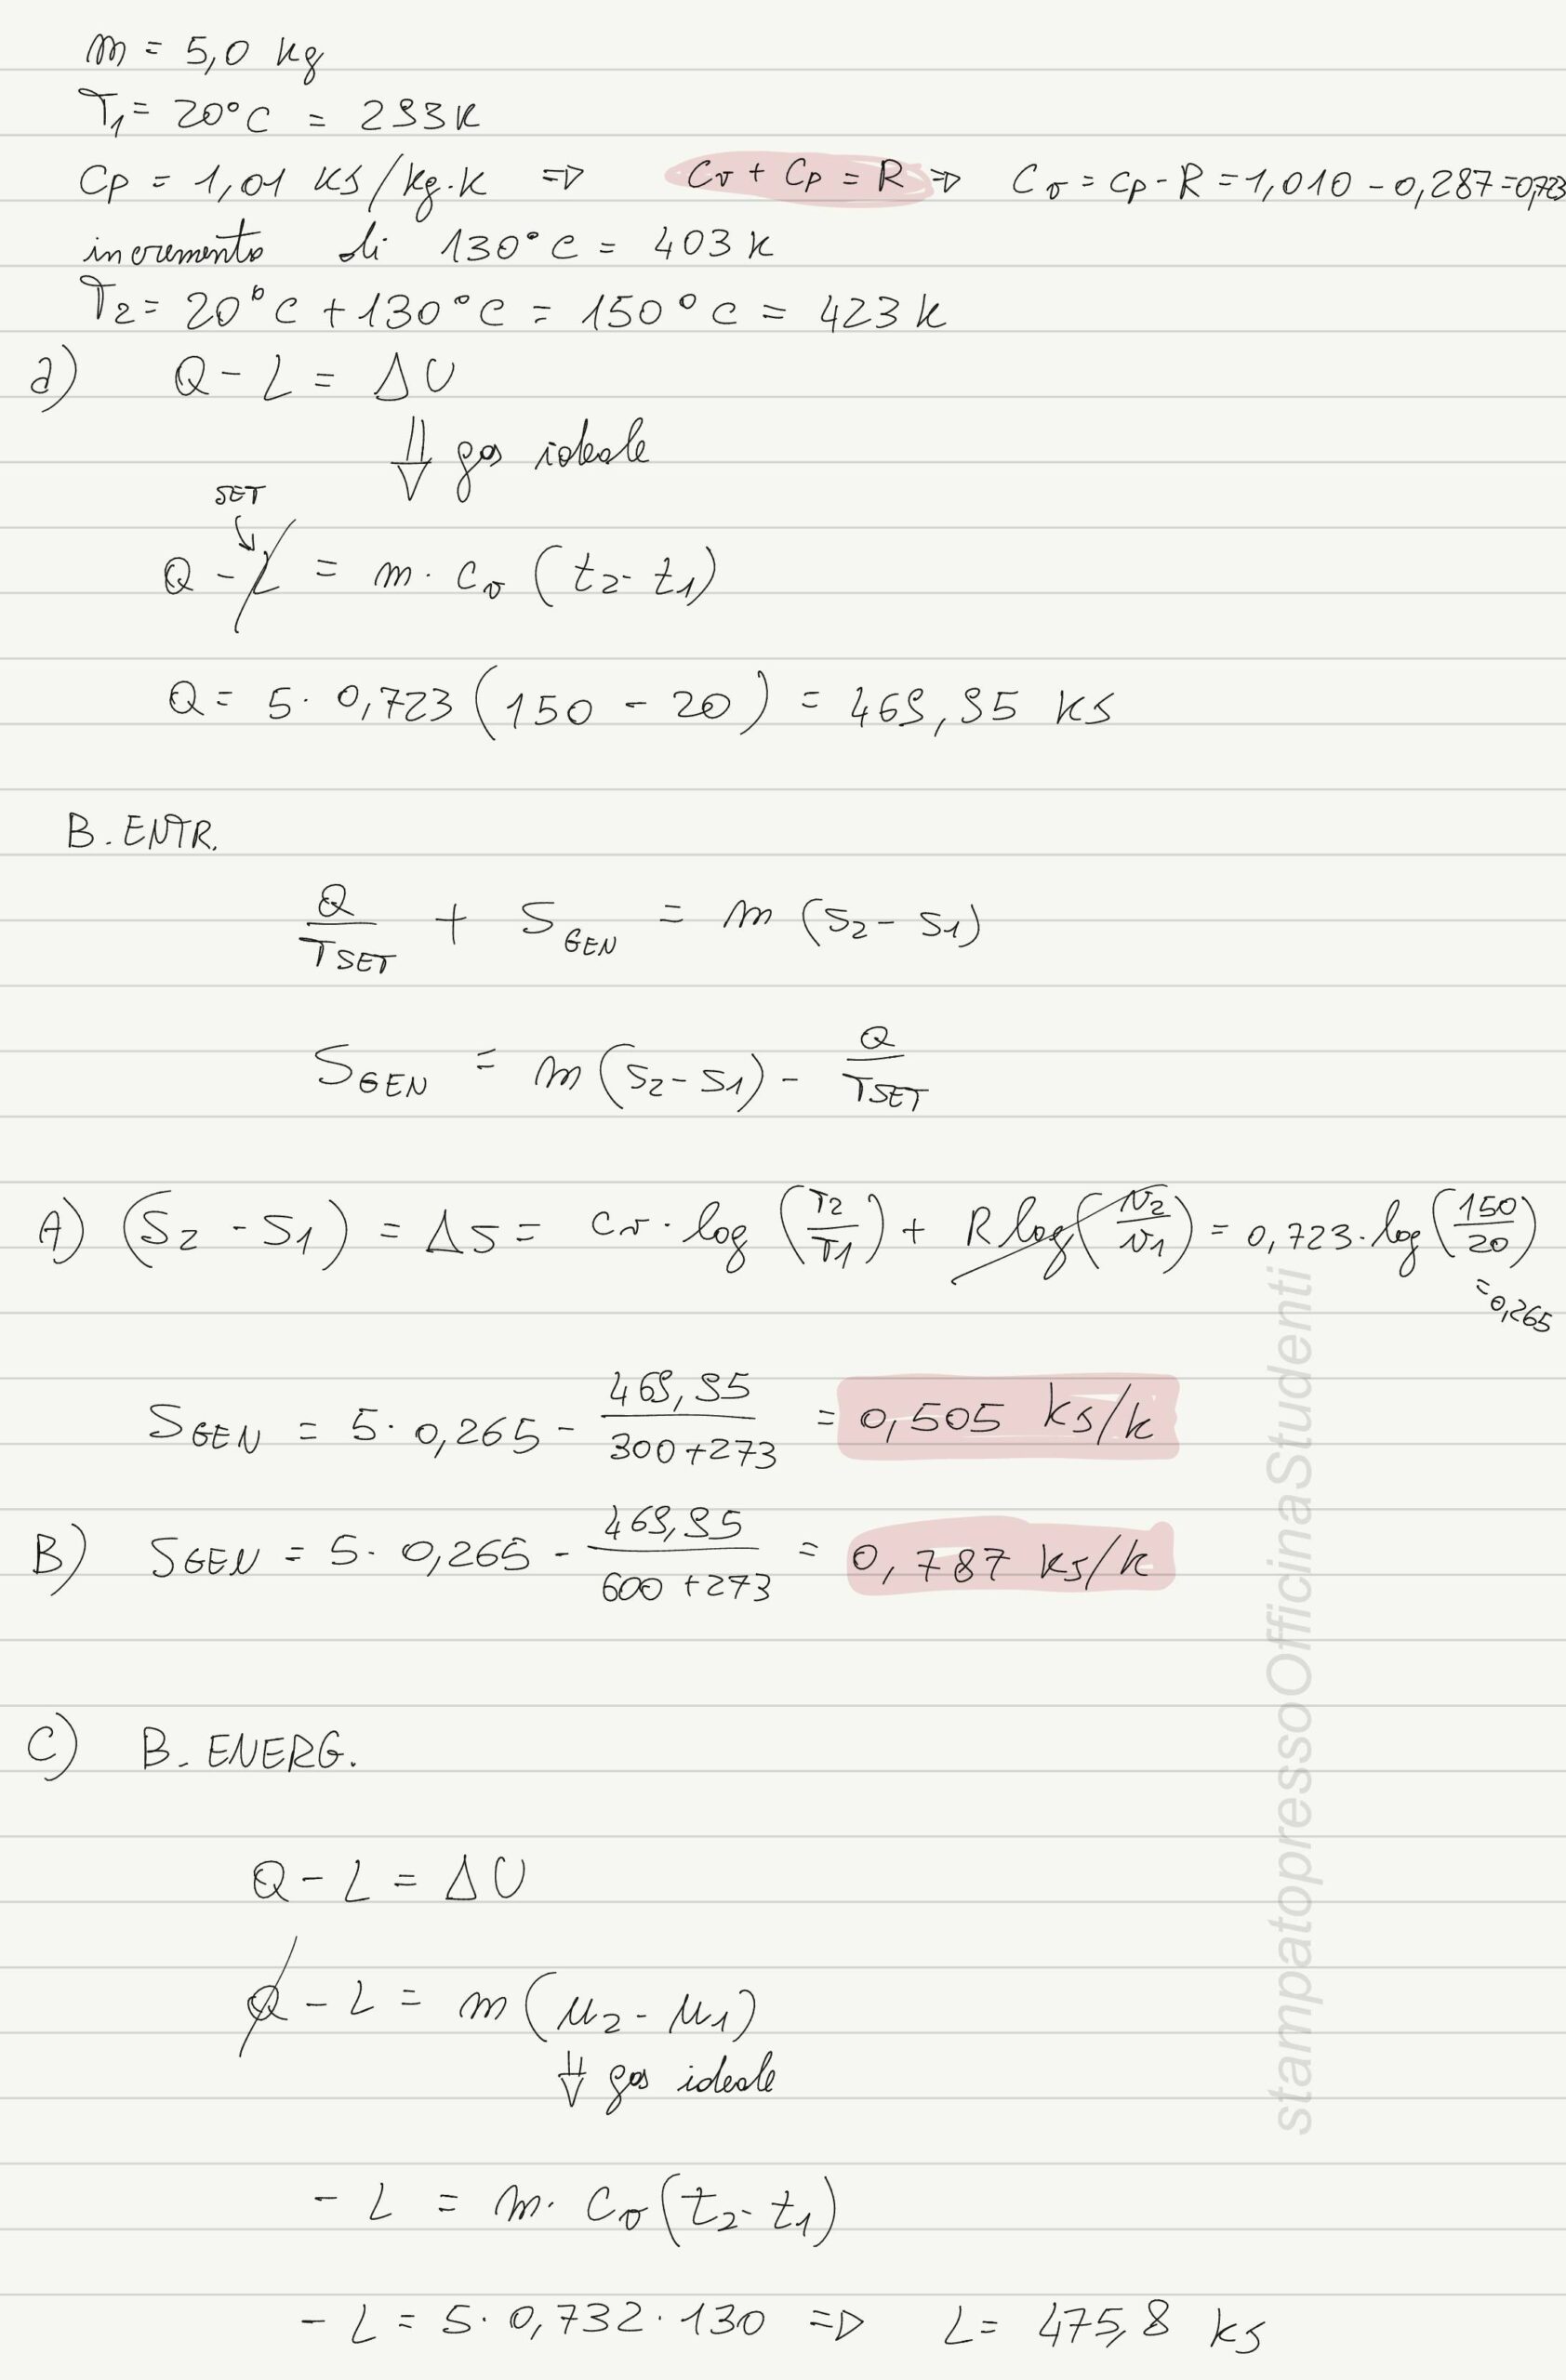 m = 5,0 kg
T1 = 20°C = 293K
Cp = 1,01 KJ/kg.K => Cv + Cp = R => Cv = Cp - R = 1,010 - 0,287 = 0,723
incremento di 130°C = 403 K
T2 = 20°C + 130°C = 150°C = 423 K
a) Q - L = ΔU
⇓ gas ideale
SET
Q - L = m · Cv (t2 - t1)
Q = 5 · 0,723 (150 - 20) = 469,95 KJ
B. ENTR.
Q/TSET + SGEN = m (S2 - S1)
SGEN = m (S2 - S1) - Q/TSET
A) (S2 - S1) = ΔS = Cv · log (T2/T1) + R log (v2/v1) = 0,723 · log (150/20)
= 0,265
SGEN = 5 · 0,265 - 469,95/300+273 = 0,505 KJ/K
B) SGEN = 5 · 0,265 - 469,95/600+273 = 0,787 KJ/K
C) B. ENERG.
Q - L = ΔU
Q - L = m (u2 - u1)
⇓ gas ideale
- L = m · Cv (t2 - t1)
- L = 5 · 0,732 · 130 => L = 475,8 KJ
stampatopressoOfficinaStudenti